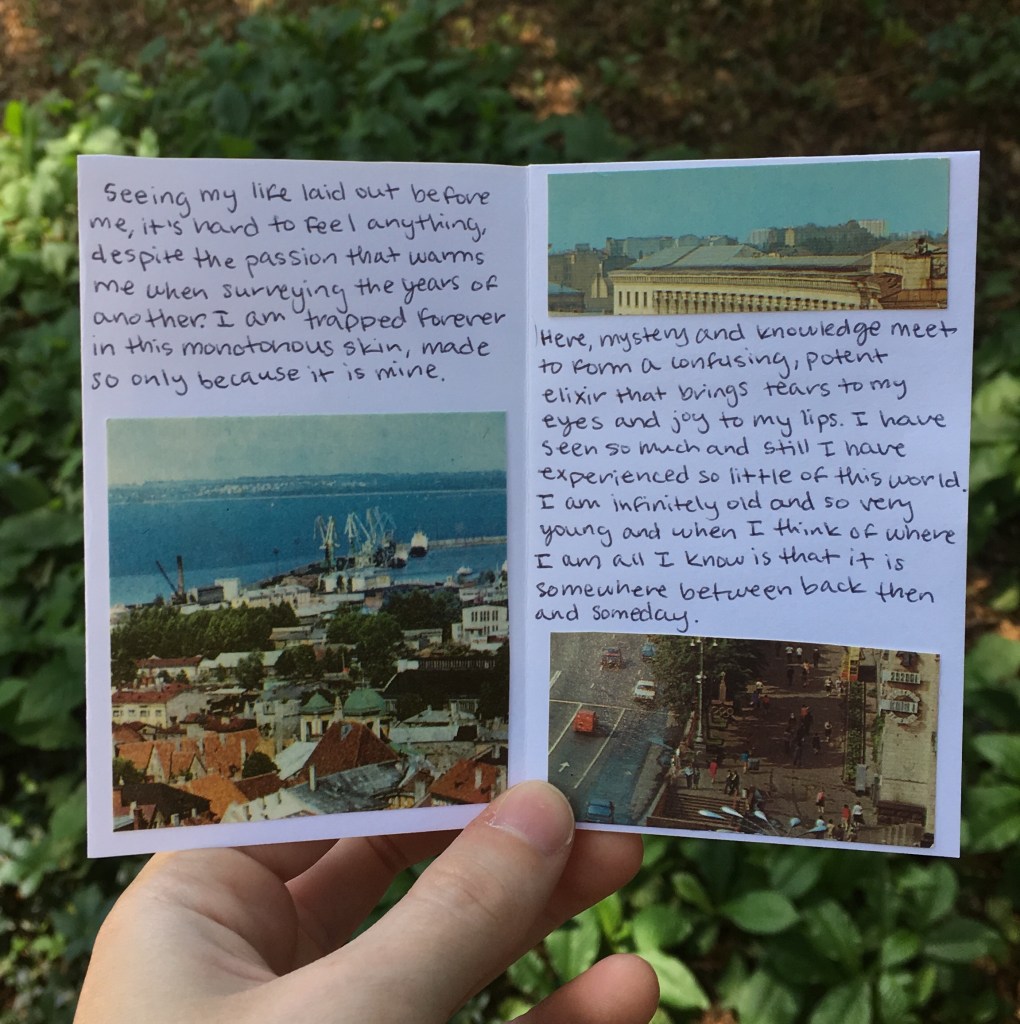 Seeing my life laid out before
me, it's hard to feel anything,
despite the passion that warms
me when surveying the years of
another. I am trapped forever
in this monotonous skin, made
so only because it is mine.
Here, mystery and knowledge meet
to form a confusing, potent
elixir that brings tears to my
eyes and joy to my lips. I have
seen so much and still I have
experienced so little of this world.
I am infinitely old and so very
young and when I think of where
I am all I know is that it is
somewhere between back then
and someday.